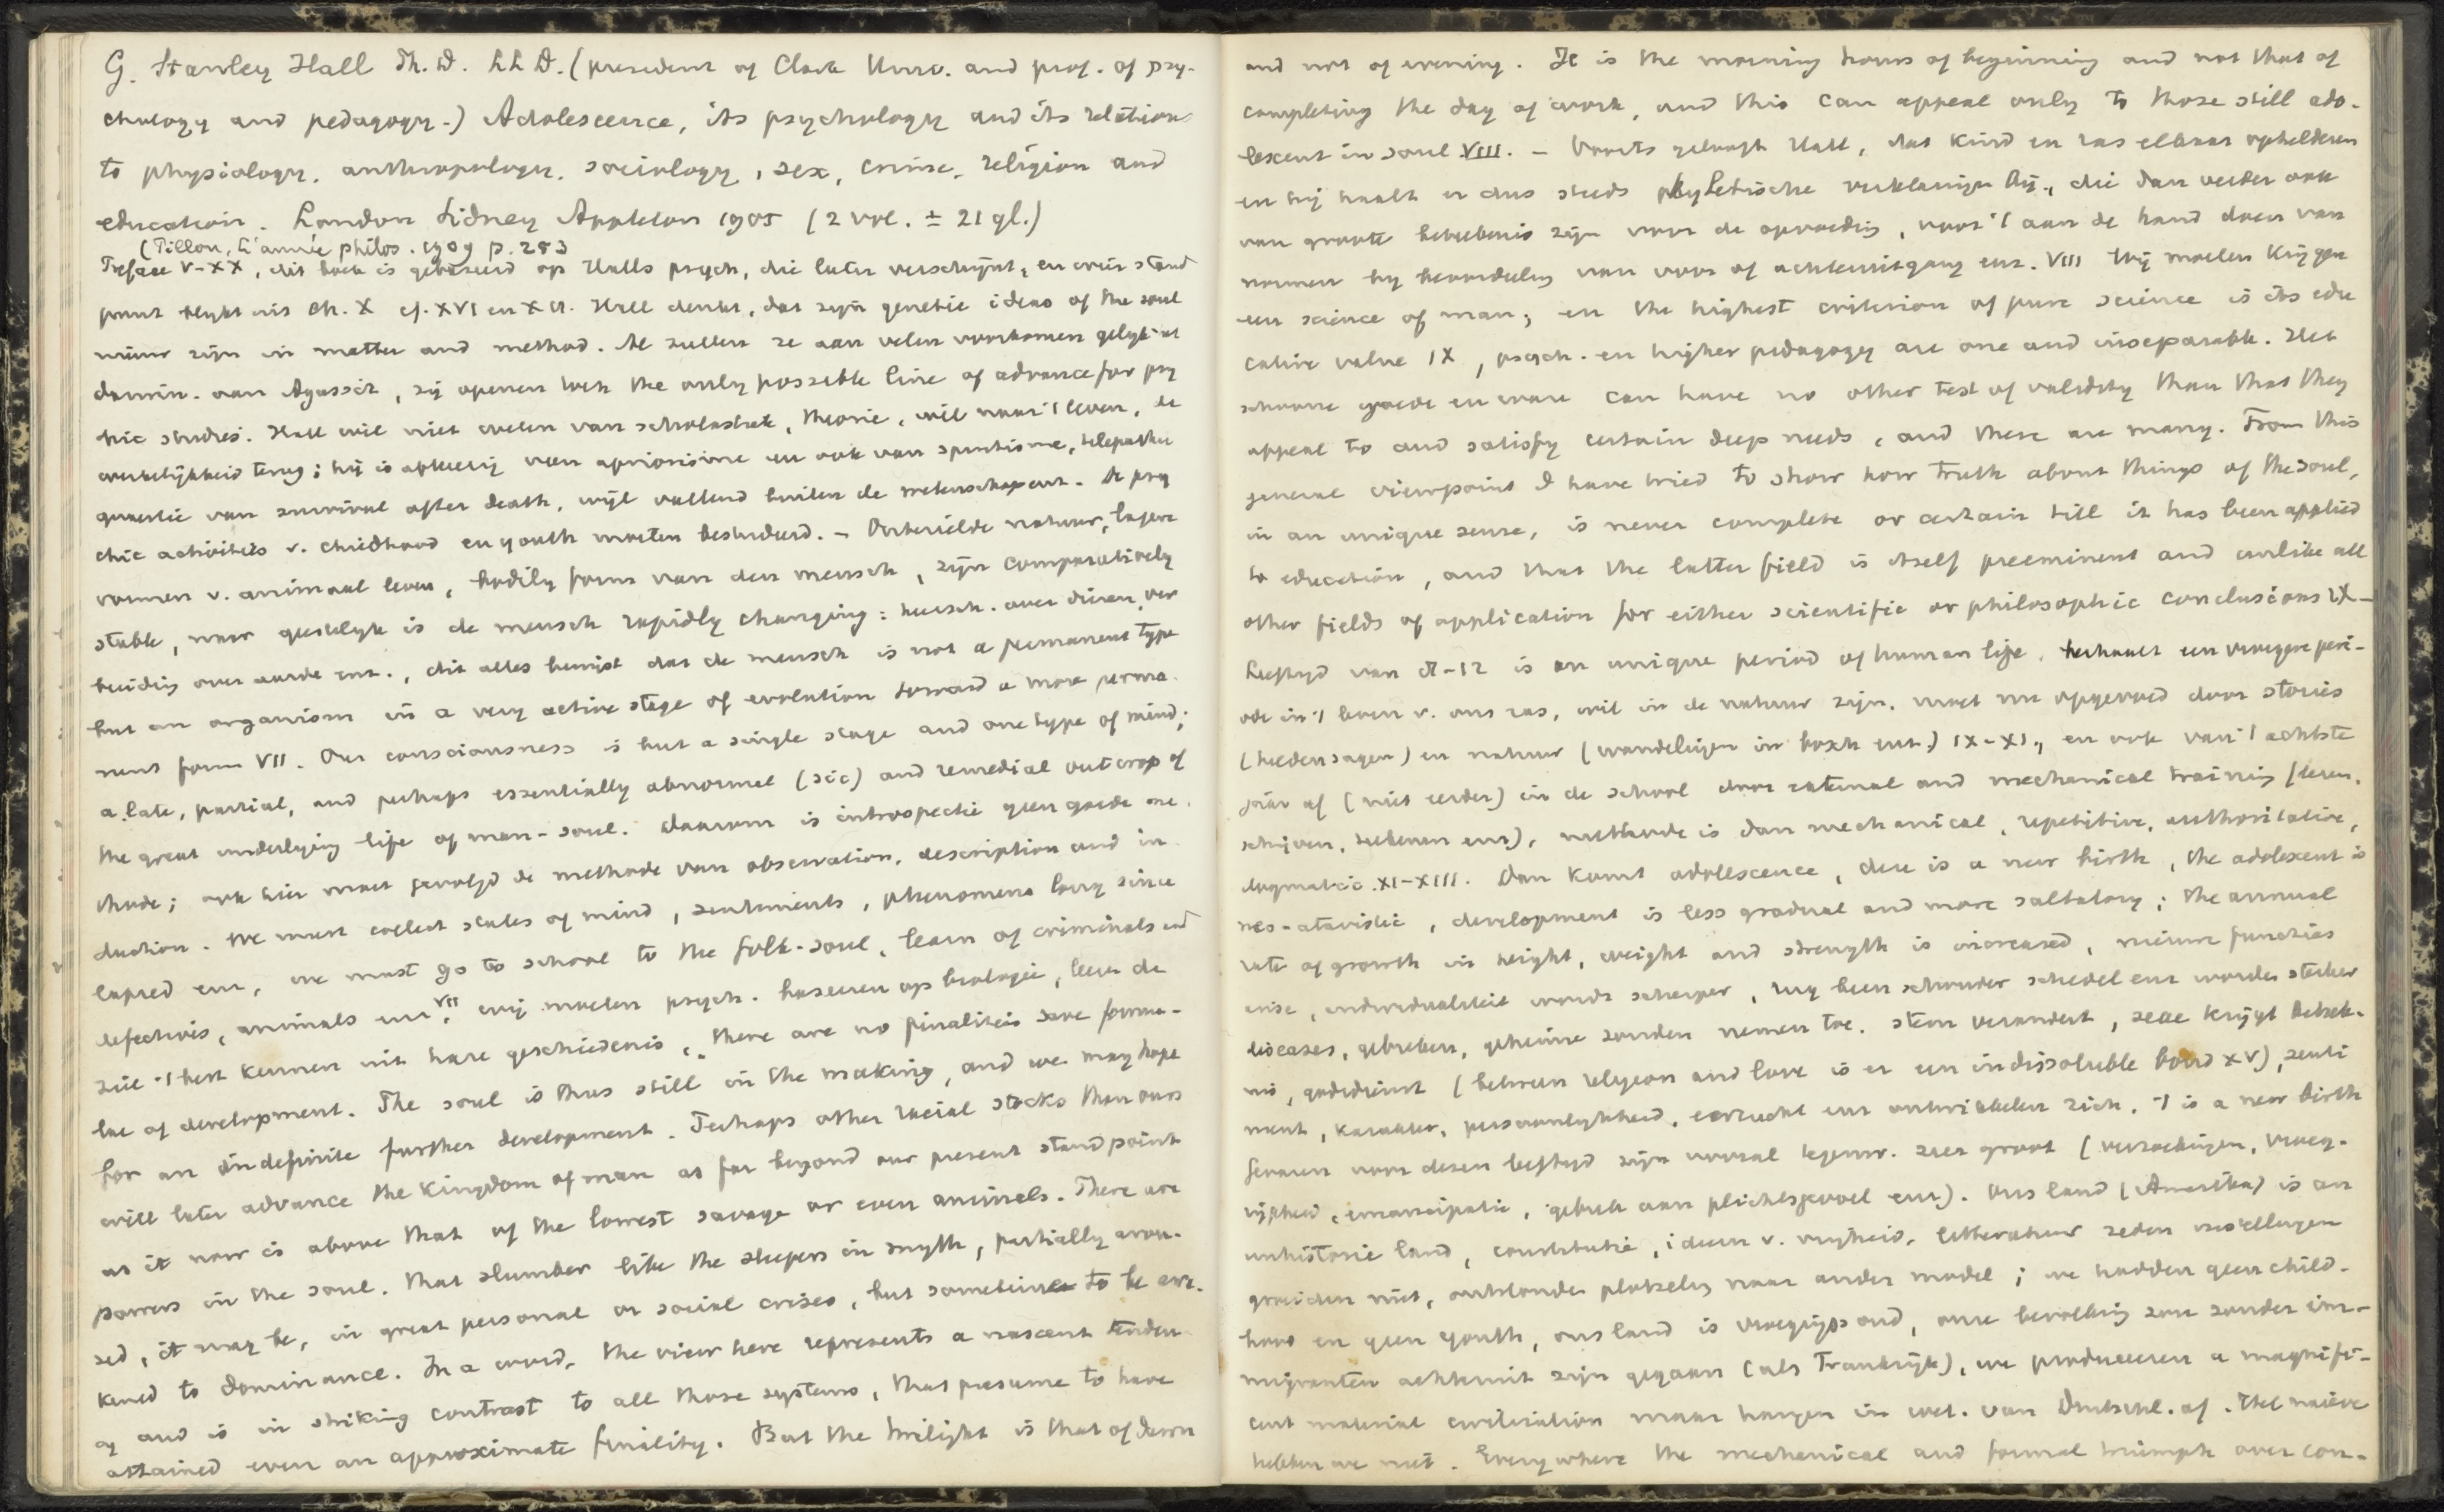 G. Stanley Hall Ph. D. LL D. (president of Clark Univ. and prof. of psy-
chology and pedagogy.) Adolescence, its psychology and its relations
to physiology, anthropology, sociology, sex, crime, religion and
education. London Sidney Appleton 1905 (2 vol. ± 21 gl.)
(Pillon, L'année philos. 1909 p. 253
Preface V-XX, dit boek is gebaseerd op Halls psych, die later verschijnt, en wier stand
punt blijkt uit Ch. X cf. XVI en XII. Hall denkt, dat zijn genetic ideas of the soul
nieuw zijn in matter and method. Al zullen ze aan velen voorkomen gelijk 't
darwin. aan Agassiz, zij openen toch the only possible line of advance for psy
chic studies. Hall wil niet weten van scholastiek, theorie, wil naar 't leven, de
werkelijkheid terug; hij is afkeerig van apriorisme en ook van spiritisme, telepathie
quaestie van survival after death, wijl vallend buiten de wetenschap enz. De psy
chic activities v. childhood en youth moeten bestudeerd. – Onbezielde natuur, lagere
vormen v. animaal leven, bodily form van den mensch, zijn comparatively
stable, maar geestelijk is de mensch rapidly changing: heersch. over dieren, ver
breiding over aarde enz., dit alles bewijst dat de mensch is not a permanent type
but an organism in a very active stage of evolution toward a more perma-
nent form VII. Our consciousness is but a single stage and one type of mind;
a late, partial, and perhaps essentially abnormal (sic) and remedial outcrop of
the great underlying life of man-soul. Daarom is introspectie geen goede me-
thode; ook hier moet gevolgd de methode van observation, description and in-
duction. We must collect states of mind, sentiments, phenomena long since
lapsed enz, we must go to school to the folk-soul, learn of criminals and
defectives, animals enz VII. wij moeten psych. baseeren op biologie, leer de
ziel 't best kennen uit hare geschiedenis, "there are no finalities save formu-
lae of development. The soul is thus still in the making, and we may hope
for an indefinite further development. Perhaps other racial stocks than ours
will later advance the kingdom of man as far beyond our present standpoint
as it now is above that of the lowest savage or even animals. There are
powers in the soul, that slumber like the sleepers in myth, partially arou-
sed, it may be, in great personal or social crises, but sometime to be awa-
kened to dominance. In a word, the view here represents a nascent tenden
cy and is in striking contrast to all those systems, that presume to have
attained even an approximate finality. But the twilight is that of dawn
and not of evening. It is the morning hours of beginning and not that of
completing the day of work, and this can appeal only to those still ado-
lescent in soul VIII. – Voorts gelooft Hall, dat kind en ras elkaar ophelderen
en hij haalt er dus steeds phyletische verklaringen bij, die dan verder ook
van groote beteekenis zijn voor de opvoeding, voor 't aan de hand doen van
normen bij beoordeeling van voor of achteruitgang enz. VIII Wij moeten krijgen
een science of man; en the highest criterion of pure science is its edu
cative value IX, psych. en higher pedagogy are one and inseparable. Het
schoone goede en ware can have no other test of validity than that they
appeal to and satisfy certain deep needs, and these are many. From this
general viewpoint I have tried to show how truth about things of the soul,
in an unique sense, is never complete or certain till it has been applied
to education, and that the latter field is itself preeminent and unlike all
other fields of application for either scientific or philosophic conclusions IX –
Leeftijd van 8-12 is an unique period of human life, herhaalt een vroegere peri-
ode in 't leven v. ons ras, wil in de natuur zijn, moet nu opgevoed door stories
(heldensagen) en natuur (wandelingen in bosch enz.) IX-XI, en ook van 't achtste
jaar af (niet eerder) in de school door rational and mechanical training (lezen,
schrijven, rekenen enz), methode is dan mechanical, repetitive, authoritative,
dogmatic XI-XIII. Dan komt adolescence, deze is a new birth, the adolescent is
neo-atavistic, development is less gradual and more saltatory; the annual
rate of growth in height, weight and strength is increased, nieuwe functies
enz, individualiteit wordt scherper, rug been schouder schedel enz worden sterker
diseases, gebreken, geheime zonden nemen toe. stem verandert, sexe krijgt beteek-
nis, godsdienst (between religion and love is er een indissoluble bond XV), senti
ment, karakter, persoonlijkheid, eerzucht enz ontwikkelen zich, 't is a new birth
Gevaren voor dezen leeftijd zijn vooral tegenw. zeer groot (verzoekingen, vroeg-
rijpheid, emancipatie, gebrek aan plichtsgevoel enz). Ons land (Amerika) is an
unhistoric land, constitutie, ideeën v. vrijheid, litteratuur zeden instellingen
groeiden niet, ontstonden plotseling naar ander model; we hadden geen child-
hood en geen youth, ons land is vroegrijp oud, onze bevolking zou zonder im-
migranten achteruit zijn gegaan (als Frankrijk), we produceeren a magnifi-
cent material civilization maar hangen in wet. van Duitschl. af. Het naieve
hebben we niet. Everywhere the mechanical and formal triumph over con-